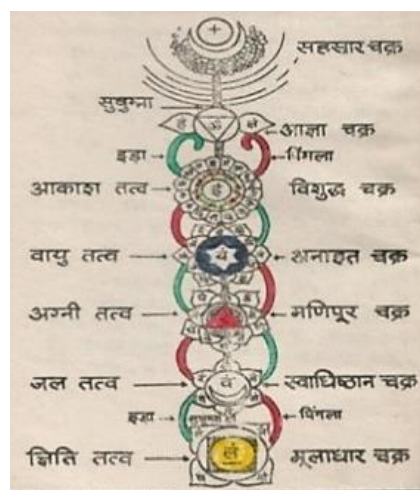 सहस्रार चक्र
सुषुम्ना
हं ॐ क्षं
आज्ञा चक्र
इड़ा
पिंगला
आकाश तत्व
हं
विशुद्ध चक्र
वायु तत्व
यं
अनाहत चक्र
अग्नी तत्व
मणिपूर चक्र
जल तत्व
वं
स्वाधिष्ठान चक्र
इड़ा
पिंगला
क्षिति तत्व
लं
मूलाधार चक्र